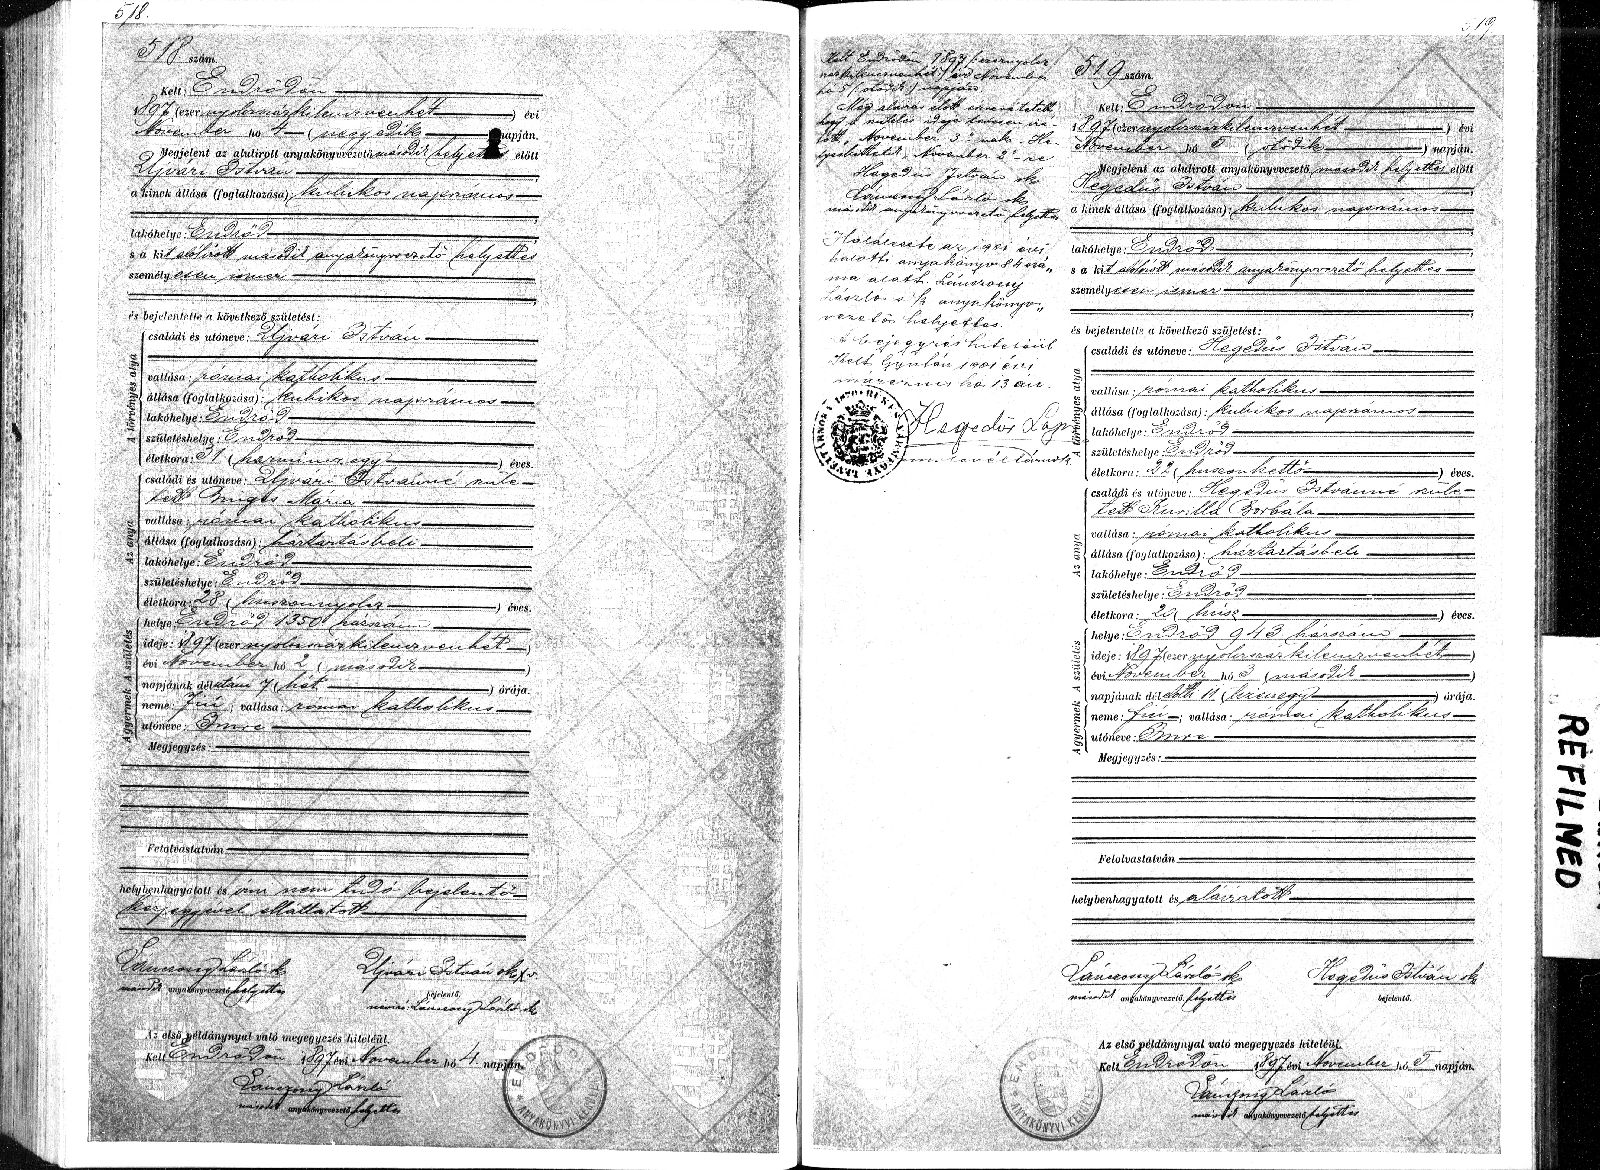 518.
518 szám.
Kelt: Endrődön
1897 (ezer nyolczszázkilenczvenhét) évi
November hó 4 (negyedik) napján.
Megjelent az alulirott anyakönyvvezető második helyettes előtt
Ujvári István
a kinek állása (foglalkozása): kubikos napszámos
lakóhelye: Endrőd
s a kit alólírott második anyakönyvvezető helyettes
személyesen ismer
és bejelentette a következő születést:
A törvényes atyja
családi és utóneve: Ujvári István
vallása: római katholikus
állása (foglalkozása): kubikos napszámos
lakóhelye: Endrőd
születéshelye: Endrőd
életkora: 31 (harminczegy) éves.
Az anya
családi és utóneve: Ujvári Istvánné szüle-
tett Mária
vallása: római katholikus
állása (foglalkozása): háztartásbeli
lakóhelye: Endrőd
születéshelye: Endrőd
életkora: 28 (huszonnyolcz) éves.
A születés
helye: Endrőd 1350 házszám
ideje: 1897 (ezer nyolczszázkilenczvenhét)
évi November hó 2 (második)
napjának délutáni 7 (hét) órája.
A gyermek
neme: fiú; vallása: római katholikus
utóneve: Imre
Megjegyzés:
Felolvastatván
helybenhagyatott és írni nem tudó bejelentő
kézjegyével elláttatott
Lánczony László sk
második anyakönyvvezető helyettes
Ujvári István sk x
bejelentő.
névíró: Lánczony László sk
Az első példánynyal való megegyezés hiteléül.
Kelt Endrődön 1897 évi November hó 4 napján.
Lánczony László
második anyakönyvvezető helyettes
ENDRŐD
ANYAKÖNYVI KERÜLET
519
Kelt Endrődön 1897 (ezernyolcz
százkilenczvenhét) évi November
hó 5 (ötödik) napján
Még aláírás előtt
hogy a születés ideje
November 3-nak He-
lyesbittetik November 2-re
Hegedüs István sk
Lánczony László sk
második anyakönyvvezető helyettes
Halálesete az 1901 évi
halotti anyakönyv 84 szá-
ma alatt. Lánczony
László s. k. anyakönyv-
vezető helyettes.
A bejegyzés hiteléül
Kelt Gyulán 1901 évi
márczius hó 13 án.
Hegedüs
519 szám.
Kelt: Endrődön
1897 (ezer nyolczszázkilenczvenhét) évi
November hó 5 (ötödik) napján.
Megjelent az alulirott anyakönyvvezető második helyettes előtt
Hegedüs István
a kinek állása (foglalkozása): kubikos napszámos
lakóhelye: Endrőd
s a kit alólírott második anyakönyvvezető helyettes
személyesen ismer
és bejelentette a következő születést:
A törvényes atyja
családi és utóneve: Hegedüs István
vallása: római katholikus
állása (foglalkozása): kubikos napszámos
lakóhelye: Endrőd
születéshelye: Endrőd
életkora: 22 (huszonkettő) éves.
Az anya
családi és utóneve: Hegedüs Istvánné szüle-
tett Kurilla Borbála
vallása: római katholikus
állása (foglalkozása): háztartásbeli
lakóhelye: Endrőd
születéshelye: Endrőd
életkora: 20 (húsz) éves.
A születés
helye: Endrőd 943 házszám
ideje: 1897 (ezer nyolczszázkilenczvenhét)
évi November hó 3 (második)
napjának délelőtti 11 (tizenegy) órája.
A gyermek
neme: fiú; vallása: római katholikus
utóneve: Imre
Megjegyzés:
Felolvastatván
helybenhagyatott és aláiratott
Lánczony László sk
második anyakönyvvezető helyettes
Hegedüs István sk
bejelentő.
Az első példánynyal való megegyezés hiteléül.
Kelt Endrődön 1897 évi November hó 5 napján.
Lánczony László
második anyakönyvvezető helyettes
ENDRŐD
ANYAKÖNYVI KERÜLET
REFILMED